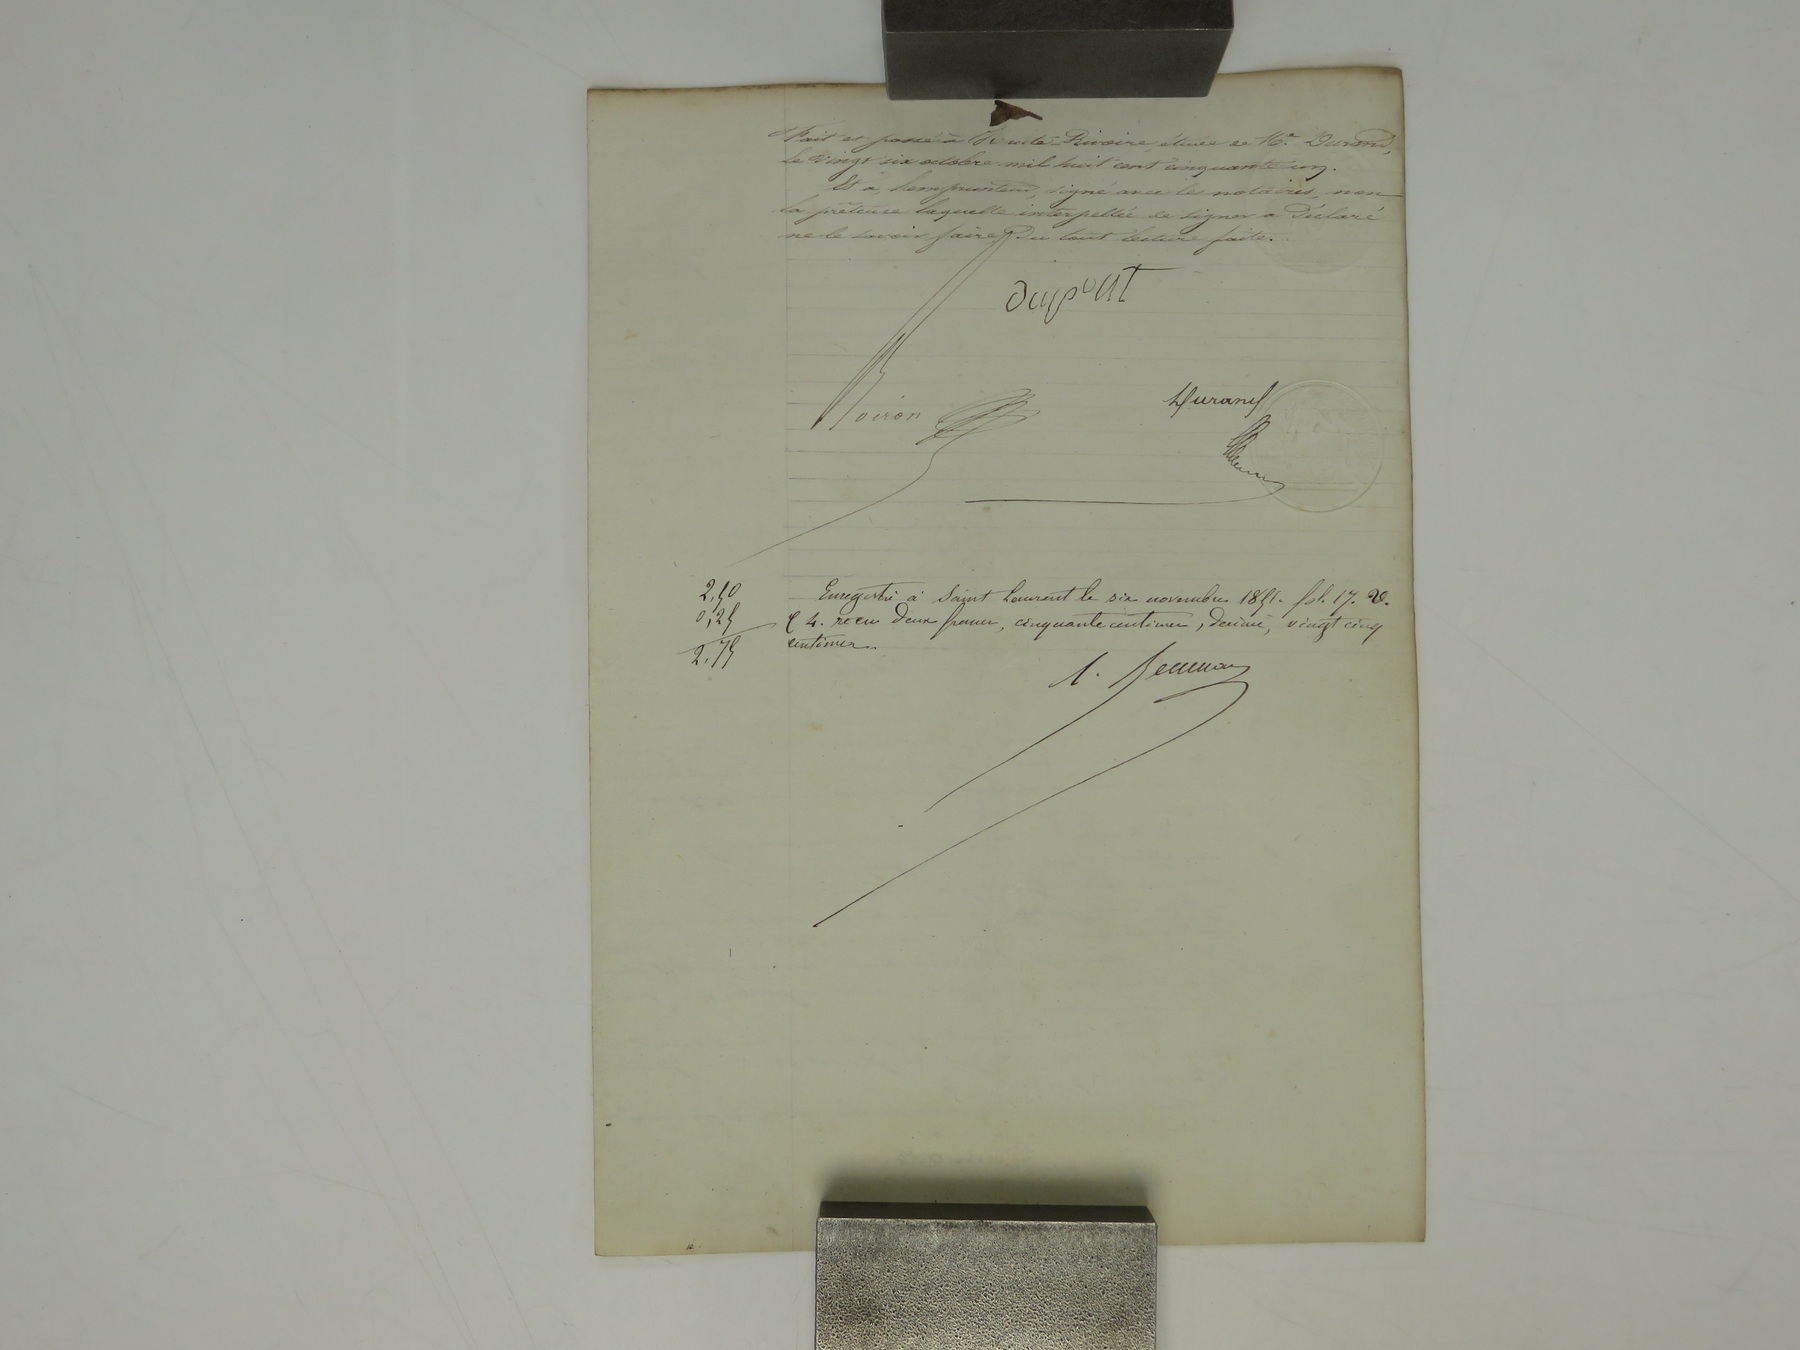 Fait et passé à Haute-Rivoire, étude de Me. Durand,
le vingt six octobre mil huit cent cinquante un.
Et a, l'emprunteur, signé avec les notaires, non
la prêteuse laquelle interpellée de signer a déclaré
ne le savoir faire du tout lecture faite.
dupont
Durand
oiron
2,50
0,25
2,75
Enregistré à Saint Laurent le six novembre 1851. fol. 17. Vo.
C 4. reçu deux francs, cinquante centimes, decime, vingt cinq
centimes.